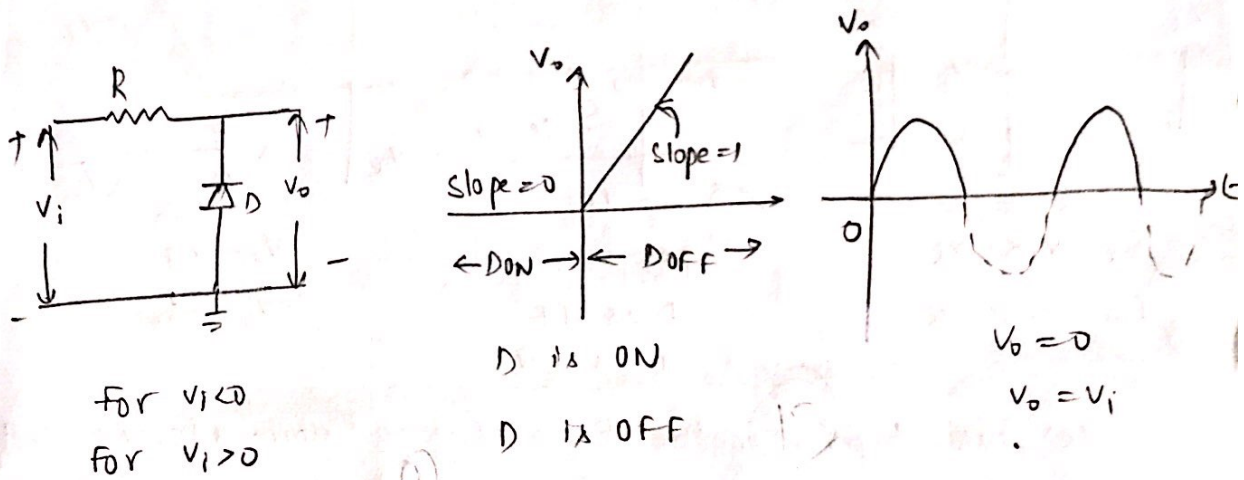 R
+
Vi
-
D
+
Vo
-
Vo
Slope=0
Slope=1
←DON→
←DOFF→
Vo
0
t
For Vi<0 D is ON Vo=0
For Vi>0 D is OFF Vo=Vi